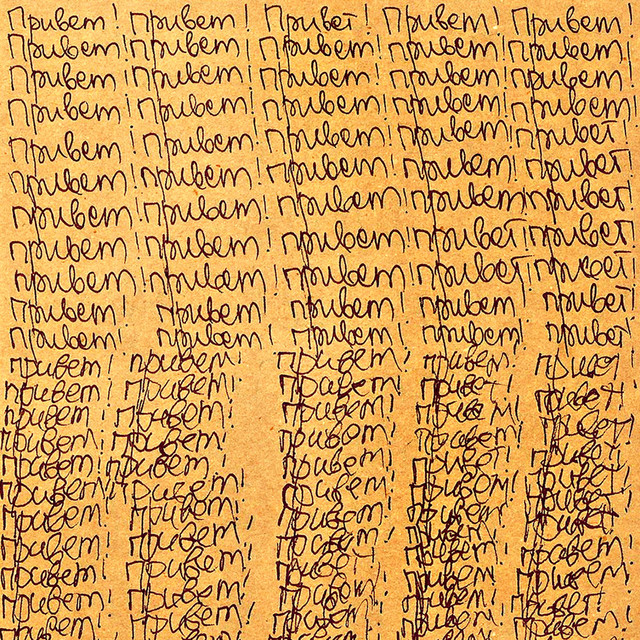 Привет! Привет! Привет! Привет! Привет!
Привет! Привет! Привет! Привет! Привет!
Привет! Привет! Привет! Привет! Привет!
Привет! Привет! Привет! Привет! Привет!
Привет! Привет! Привет! Привет! Привет!
Привет! Привет! Привет! Привет! Привет!
Привет! Привет! Привет! Привет! Привет!
Привет! Привет! Привет! Привет! Привет!
Привет! Привет! Привет! Привет! Привет!
Привет! Привет! Привет! Привет! Привет!
Привет! Привет! Привет! Привет! Привет
привет! привет! привет! привет! привет!
привет! привет! привет! привет! привет!
привет! привет! привет! привет! привет!
привет! привет! привет! привет! привет!
привет! привет! привет! привет! привет!
привет! привет! привет! привет! привет!
привет! привет! привет! привет! привет!
привет! привет! привет! привет! привет!
привет! привет! привет! привет! привет!
привет! привет! привет! привет! привет!
привет! привет! привет! привет! привет!